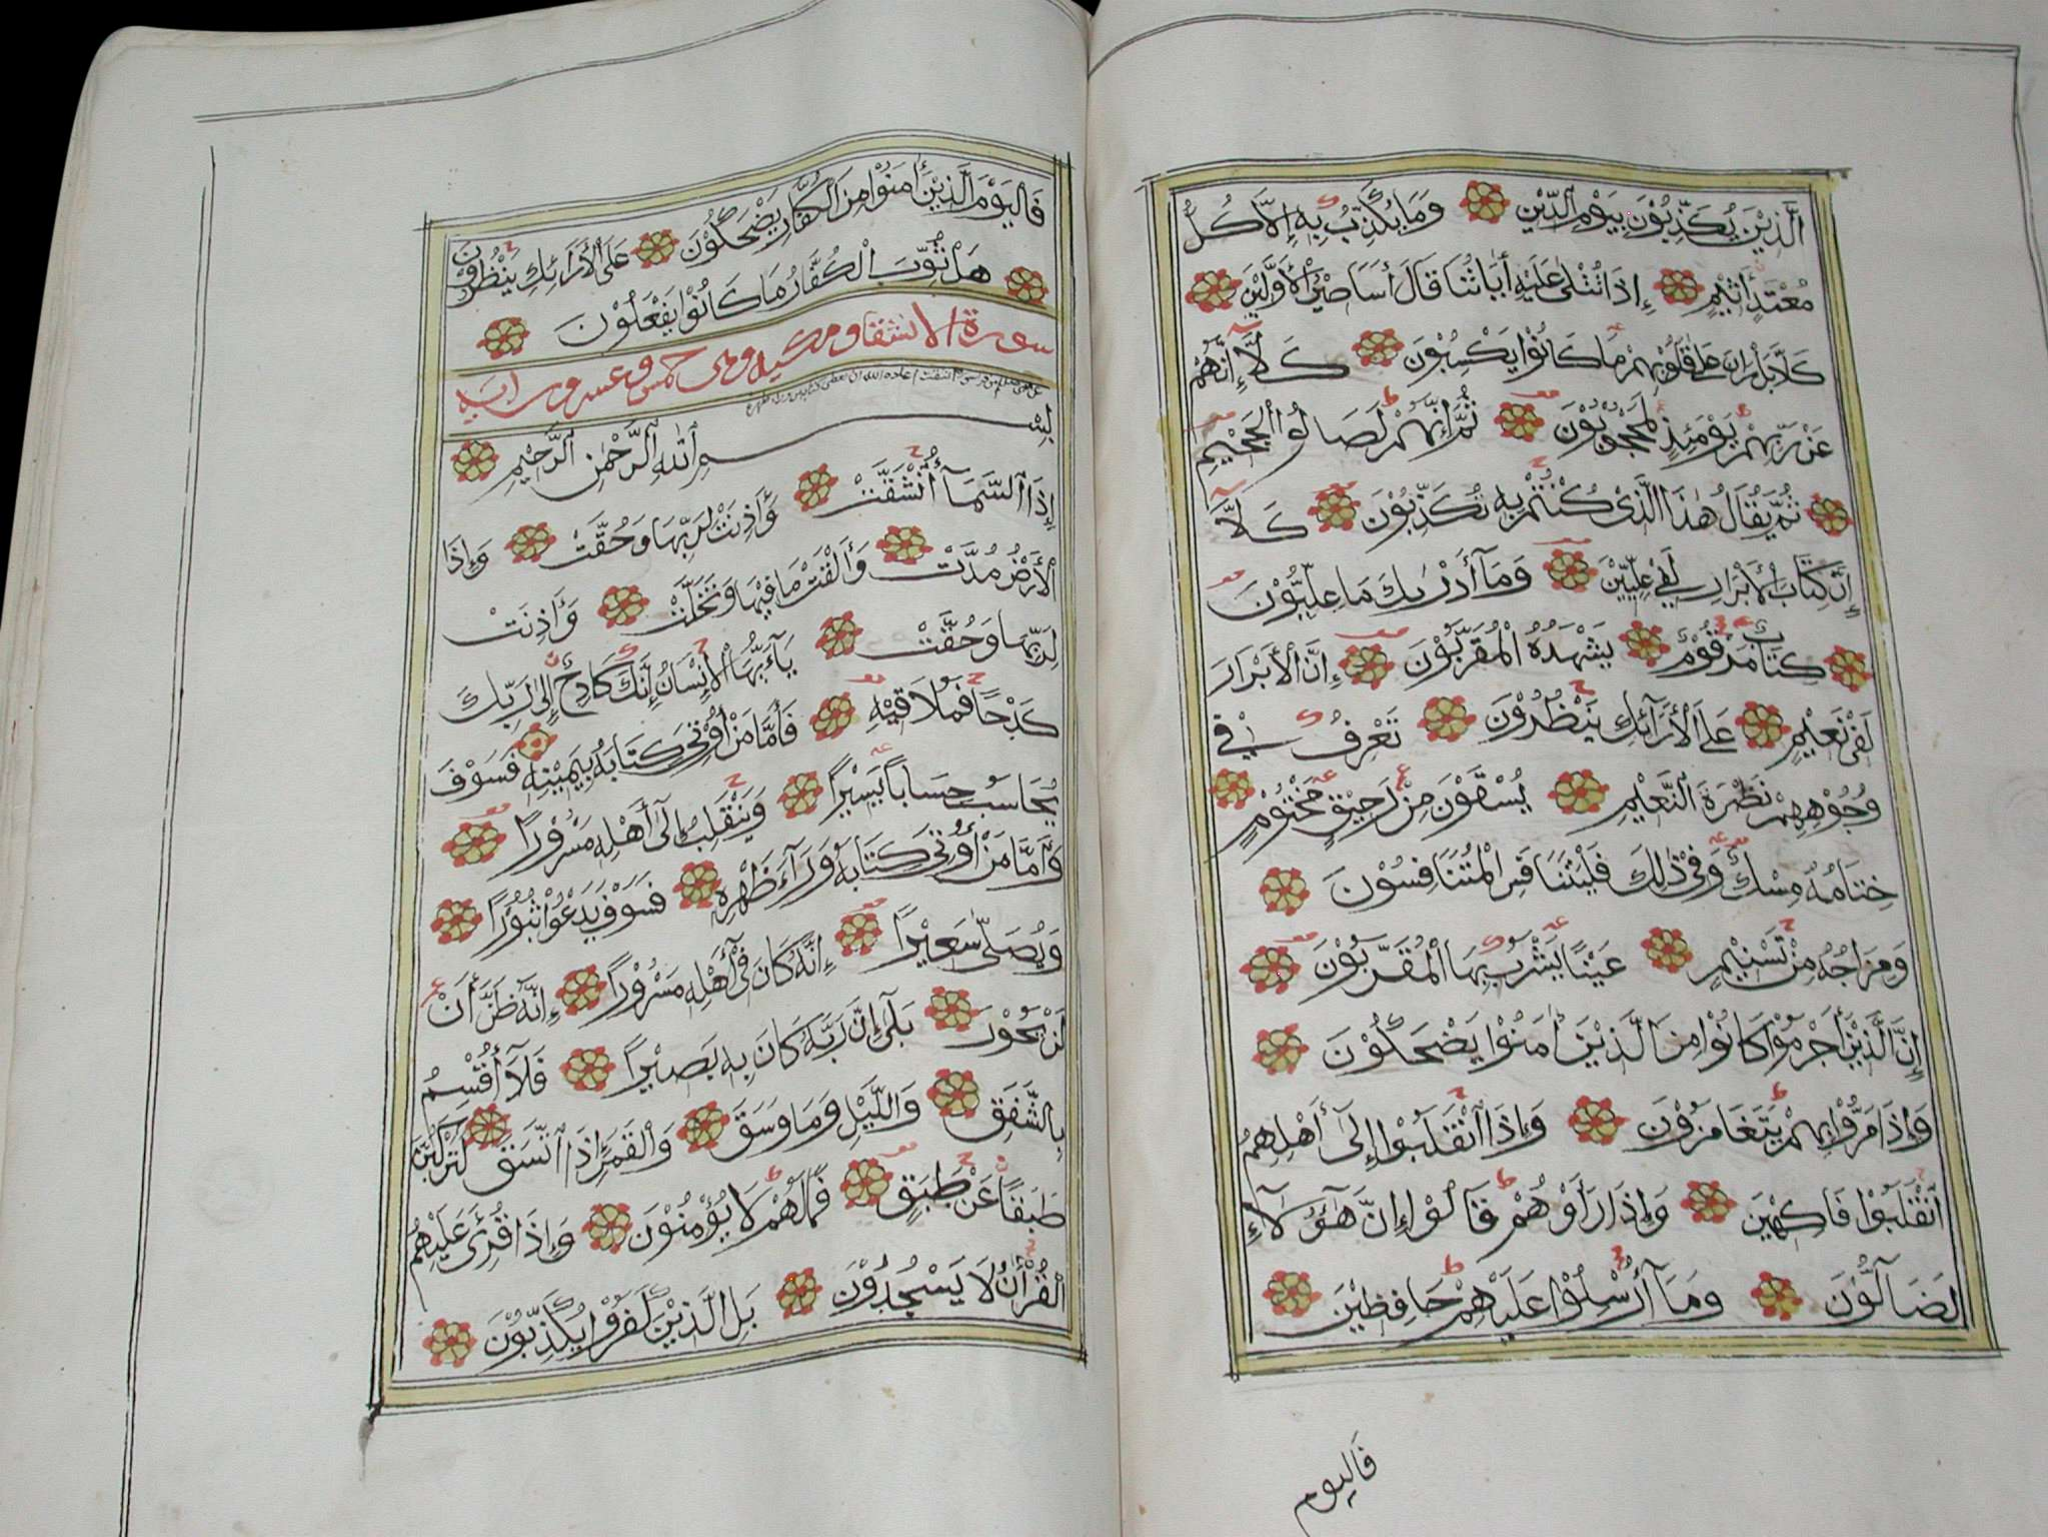 الَّذِيْنَ يُكَذِّبُوْنَ بِيَوْمِ الدِّيْنِ وَمَا يُكَذِّبُ بِهِ إِلَّا كُلُّ
مُعْتَدٍ أَثِيْمٍ إِذَا تُتْلَى عَلَيْهِ أٰيَاتُنَا قَالَ أَسَاطِيْرُ الْأَوَّلِيْنَ
كَلَّا بَلْ رَانَ عَلَى قُلُوْبِهِمْ مَا كَانُوْا يَكْسِبُوْنَ كَلَّا إِنَّهُمْ
عَنْ رَبِّهِمْ يَوْمَئِذٍ لَمَحْجُوْبُوْنَ ثُمَّ إِنَّهُمْ لَصَالُوا الْجَحِيْمِ
ثُمَّ يُقَالُ هٰذَا الَّذِيْ كُنْتُمْ بِهِ تُكَذِّبُوْنَ كَلَّا
إِنَّ كِتَابَ الْأَبْرَارِ لَفِيْ عِلِّيِّيْنَ وَمَا أَدْرٰىكَ مَا عِلِّيُّوْنَ
كِتَابٌ مَرْقُوْمٌ يَشْهَدُهُ الْمُقَرَّبُوْنَ إِنَّ الْأَبْرَارَ
لَفِيْ نَعِيْمٍ عَلَى الْأَرَآئِكِ يَنْظُرُوْنَ تَعْرِفُ فِيْ
وُجُوْهِهِمْ نَضْرَةَ النَّعِيْمِ يُسْقَوْنَ مِنْ رَحِيْقٍ مَخْتُوْمٍ
خِتَامُهُ مِسْكٌ وَفِيْ ذٰلِكَ فَلْيَتَنَافَسِ الْمُتَنَافِسُوْنَ
وَمِزَاجُهُ مِنْ تَسْنِيْمٍ عَيْنًا يَشْرَبُ بِهَا الْمُقَرَّبُوْنَ
إِنَّ الَّذِيْنَ أَجْرَمُوْا كَانُوْا مِنَ الَّذِيْنَ أٰمَنُوْا يَضْحَكُوْنَ
وَإِذَا مَرُّوْا بِهِمْ يَتَغَامَزُوْنَ وَإِذَا انْقَلَبُوْا إِلَى أَهْلِهِمُ
انْقَلَبُوْا فَاكِهِيْنَ وَإِذَا رَأَوْهُمْ قَالُوْا إِنَّ هٰٓؤُلَآءِ
لَضَآلُّوْنَ وَمَآ أُرْسِلُوْا عَلَيْهِمْ حَافِظِيْنَ
فَالِيوم
فَالْيَوْمَ الَّذِيْنَ أٰمَنُوْا مِنَ الْكُفَّارِ يَضْحَكُوْنَ عَلَى الْأَرَآئِكِ يَنْظُرُوْنَ
هَلْ ثُوِّبَ الْكُفَّارُ مَا كَانُوْا يَفْعَلُوْنَ
سورة الانشقاق مكية وهي خمس وعسرون اية
بِسْمِ اللّٰهِ الرَّحْمٰنِ الرَّحِيْمِ
إِذَا السَّمَآءُ انْشَقَّتْ وَأَذِنَتْ لِرَبِّهَا وَحُقَّتْ وَإِذَا
الْأَرْضُ مُدَّتْ وَأَلْقَتْ مَا فِيْهَا وَتَخَلَّتْ وَأَذِنَتْ
لِرَبِّهَا وَحُقَّتْ يَآأَيُّهَا الْإِنْسَانُ إِنَّكَ كَادِحٌ إِلَى رَبِّكَ
كَدْحًا فَمُلَاقِيْهِ فَأَمَّا مَنْ أُوْتِيَ كِتَابَهُ بِيَمِيْنِهِ فَسَوْفَ
يُحَاسَبُ حِسَابًا يَسِيْرًا وَيَنْقَلِبُ إِلَى أَهْلِهِ مَسْرُوْرًا
وَأَمَّا مَنْ أُوْتِيَ كِتَابَهُ وَرَآءَ ظَهْرِهِ فَسَوْفَ يَدْعُوْا ثُبُوْرًا
وَيُصَلَّى سَعِيْرًا إِنَّهُ كَانَ فِيْ أَهْلِهِ مَسْرُوْرًا إِنَّهُ ظَنَّ أَنْ
لَنْ يَحُوْرَ بَلَى إِنَّ رَبَّهُ كَانَ بِهِ بَصِيْرًا فَلَا أُقْسِمُ
بِالشَّفَقِ وَاللَّيْلِ وَمَا وَسَقَ وَالْقَمَرِ إِذَا اتَّسَقَ لَتَرْكَبُنَّ
طَبَقًا عَنْ طَبَقٍ فَمَا لَهُمْ لَا يُؤْمِنُوْنَ وَإِذَا قُرِئَ عَلَيْهِمُ
الْقُرْأٰنُ لَا يَسْجُدُوْنَ بَلِ الَّذِيْنَ كَفَرُوْا يُكَذِّبُوْنَ